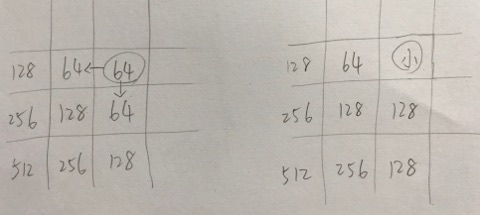 128 64 ← 64
256 128 64
512 256 128
128 64 小
256 128 128
512 256 128